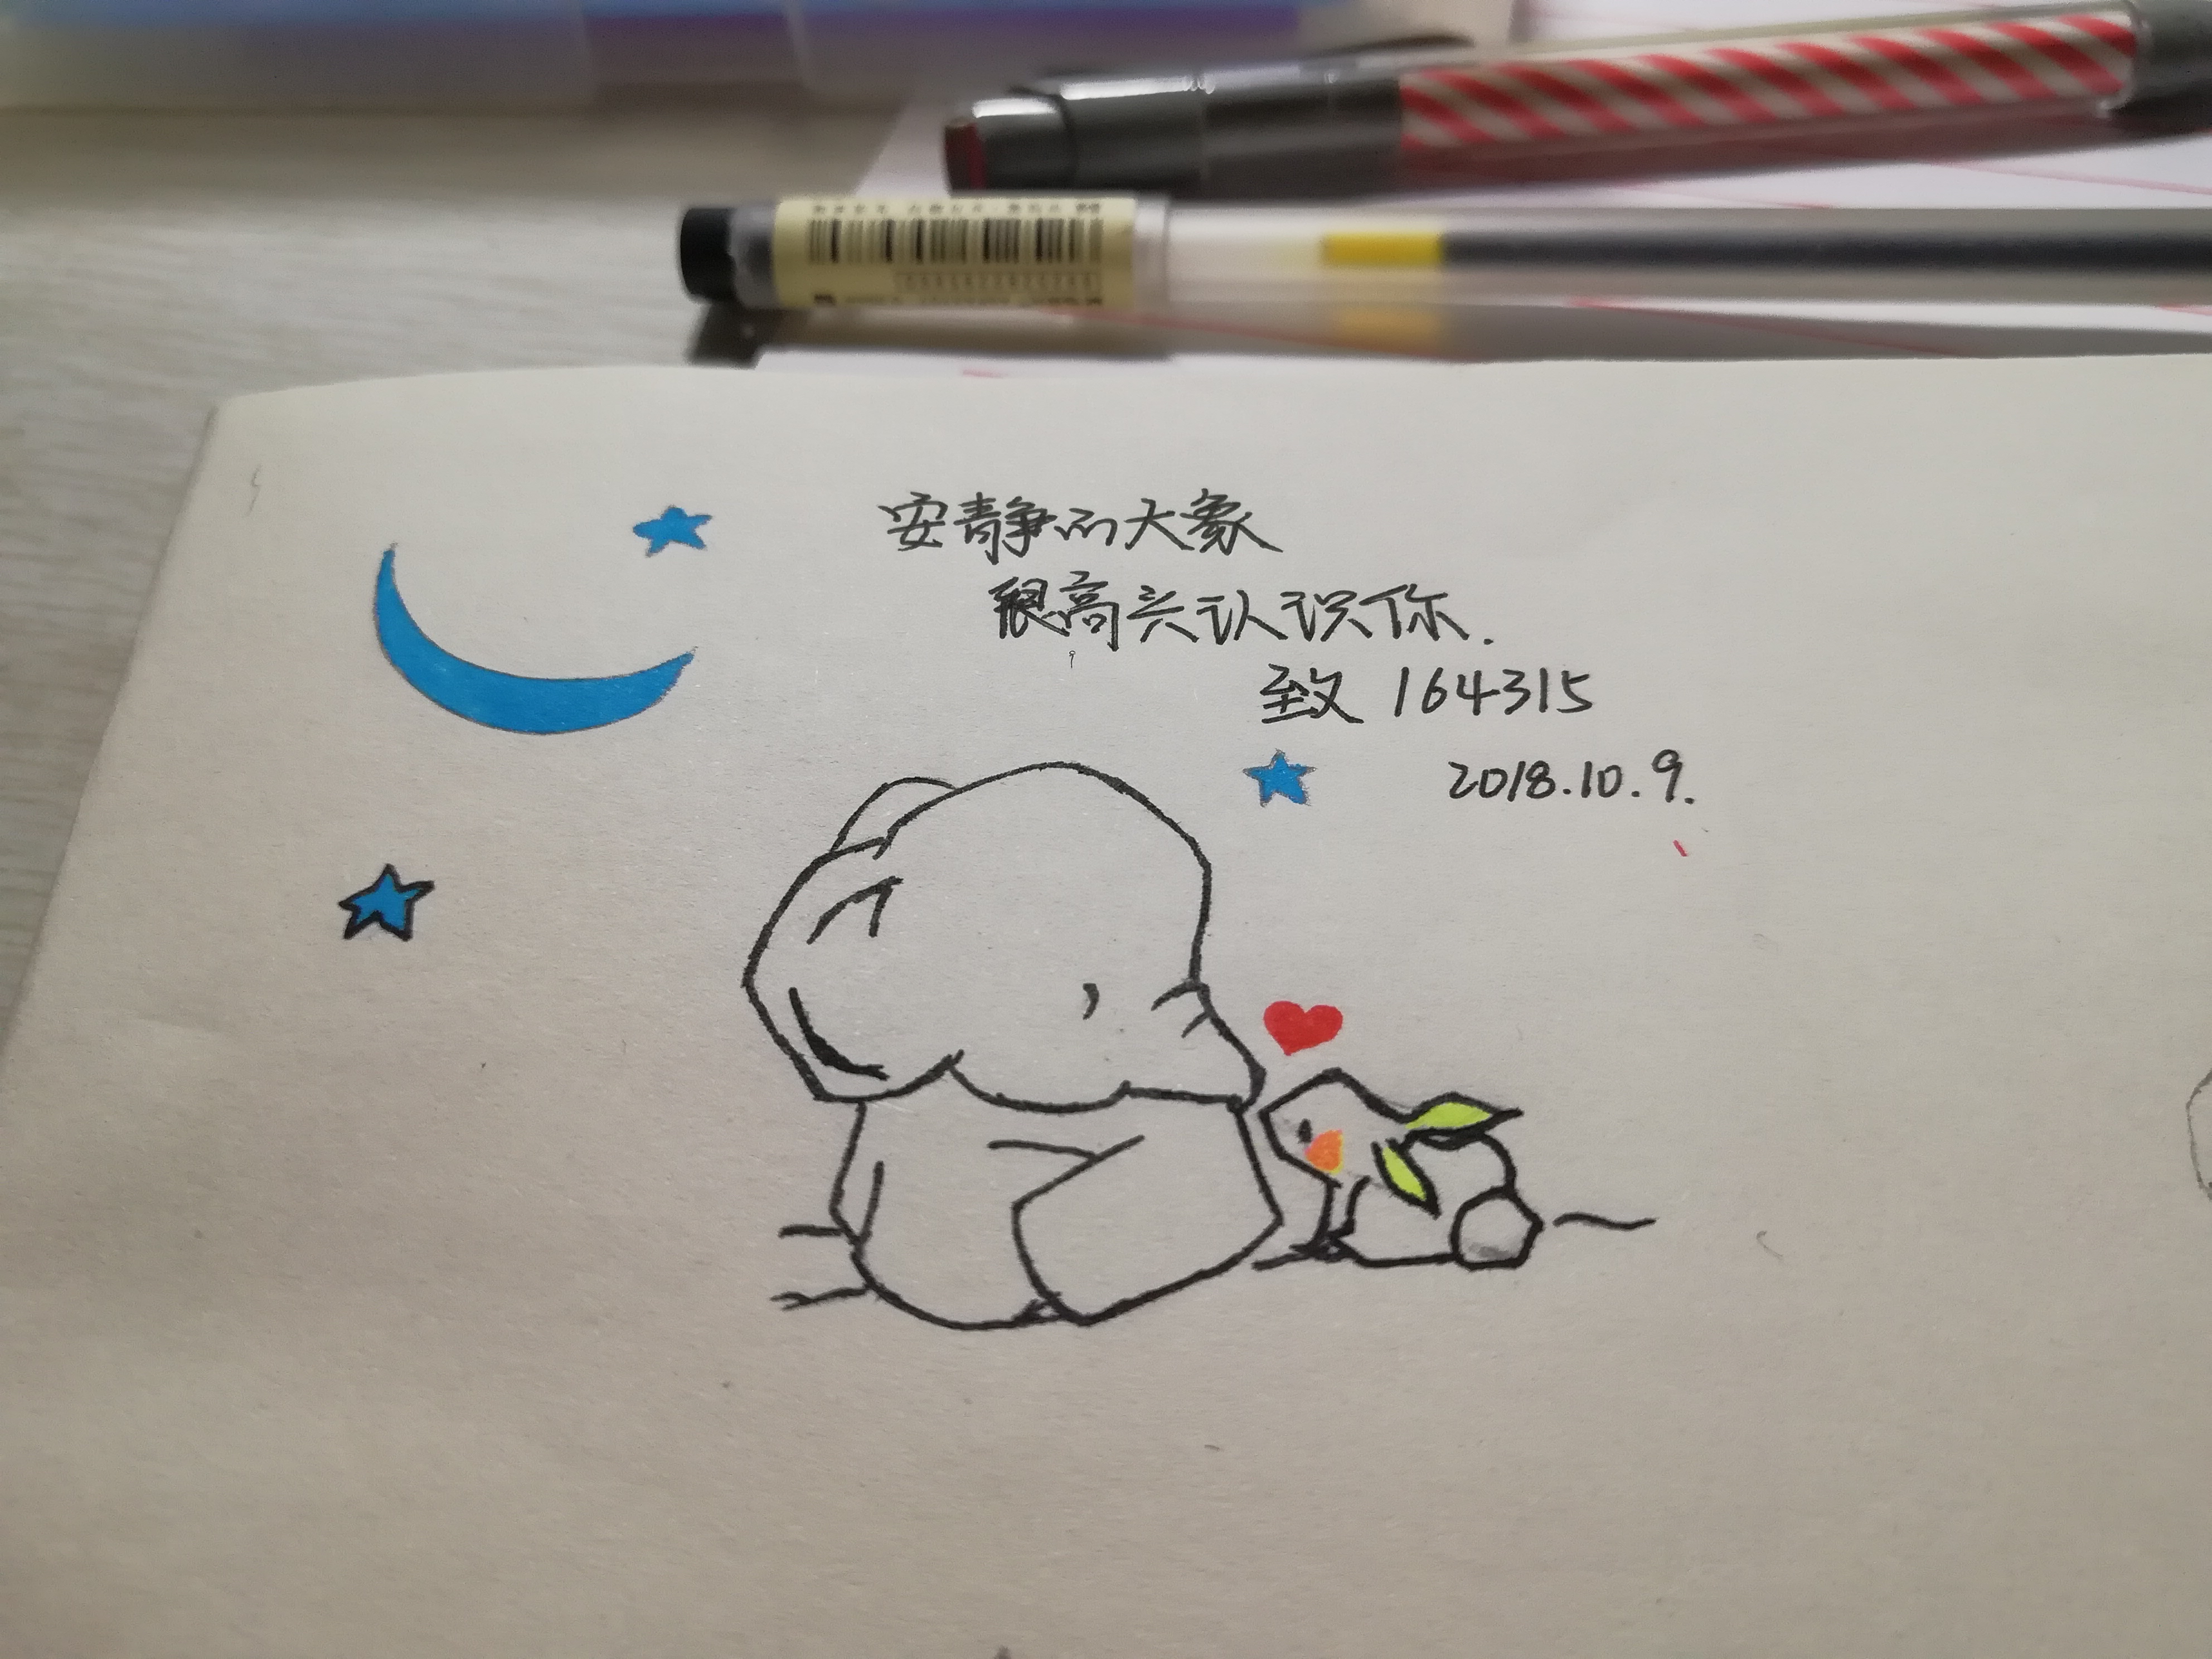 安静的大象
很高兴认识你.
致 164315
2018.10.9.